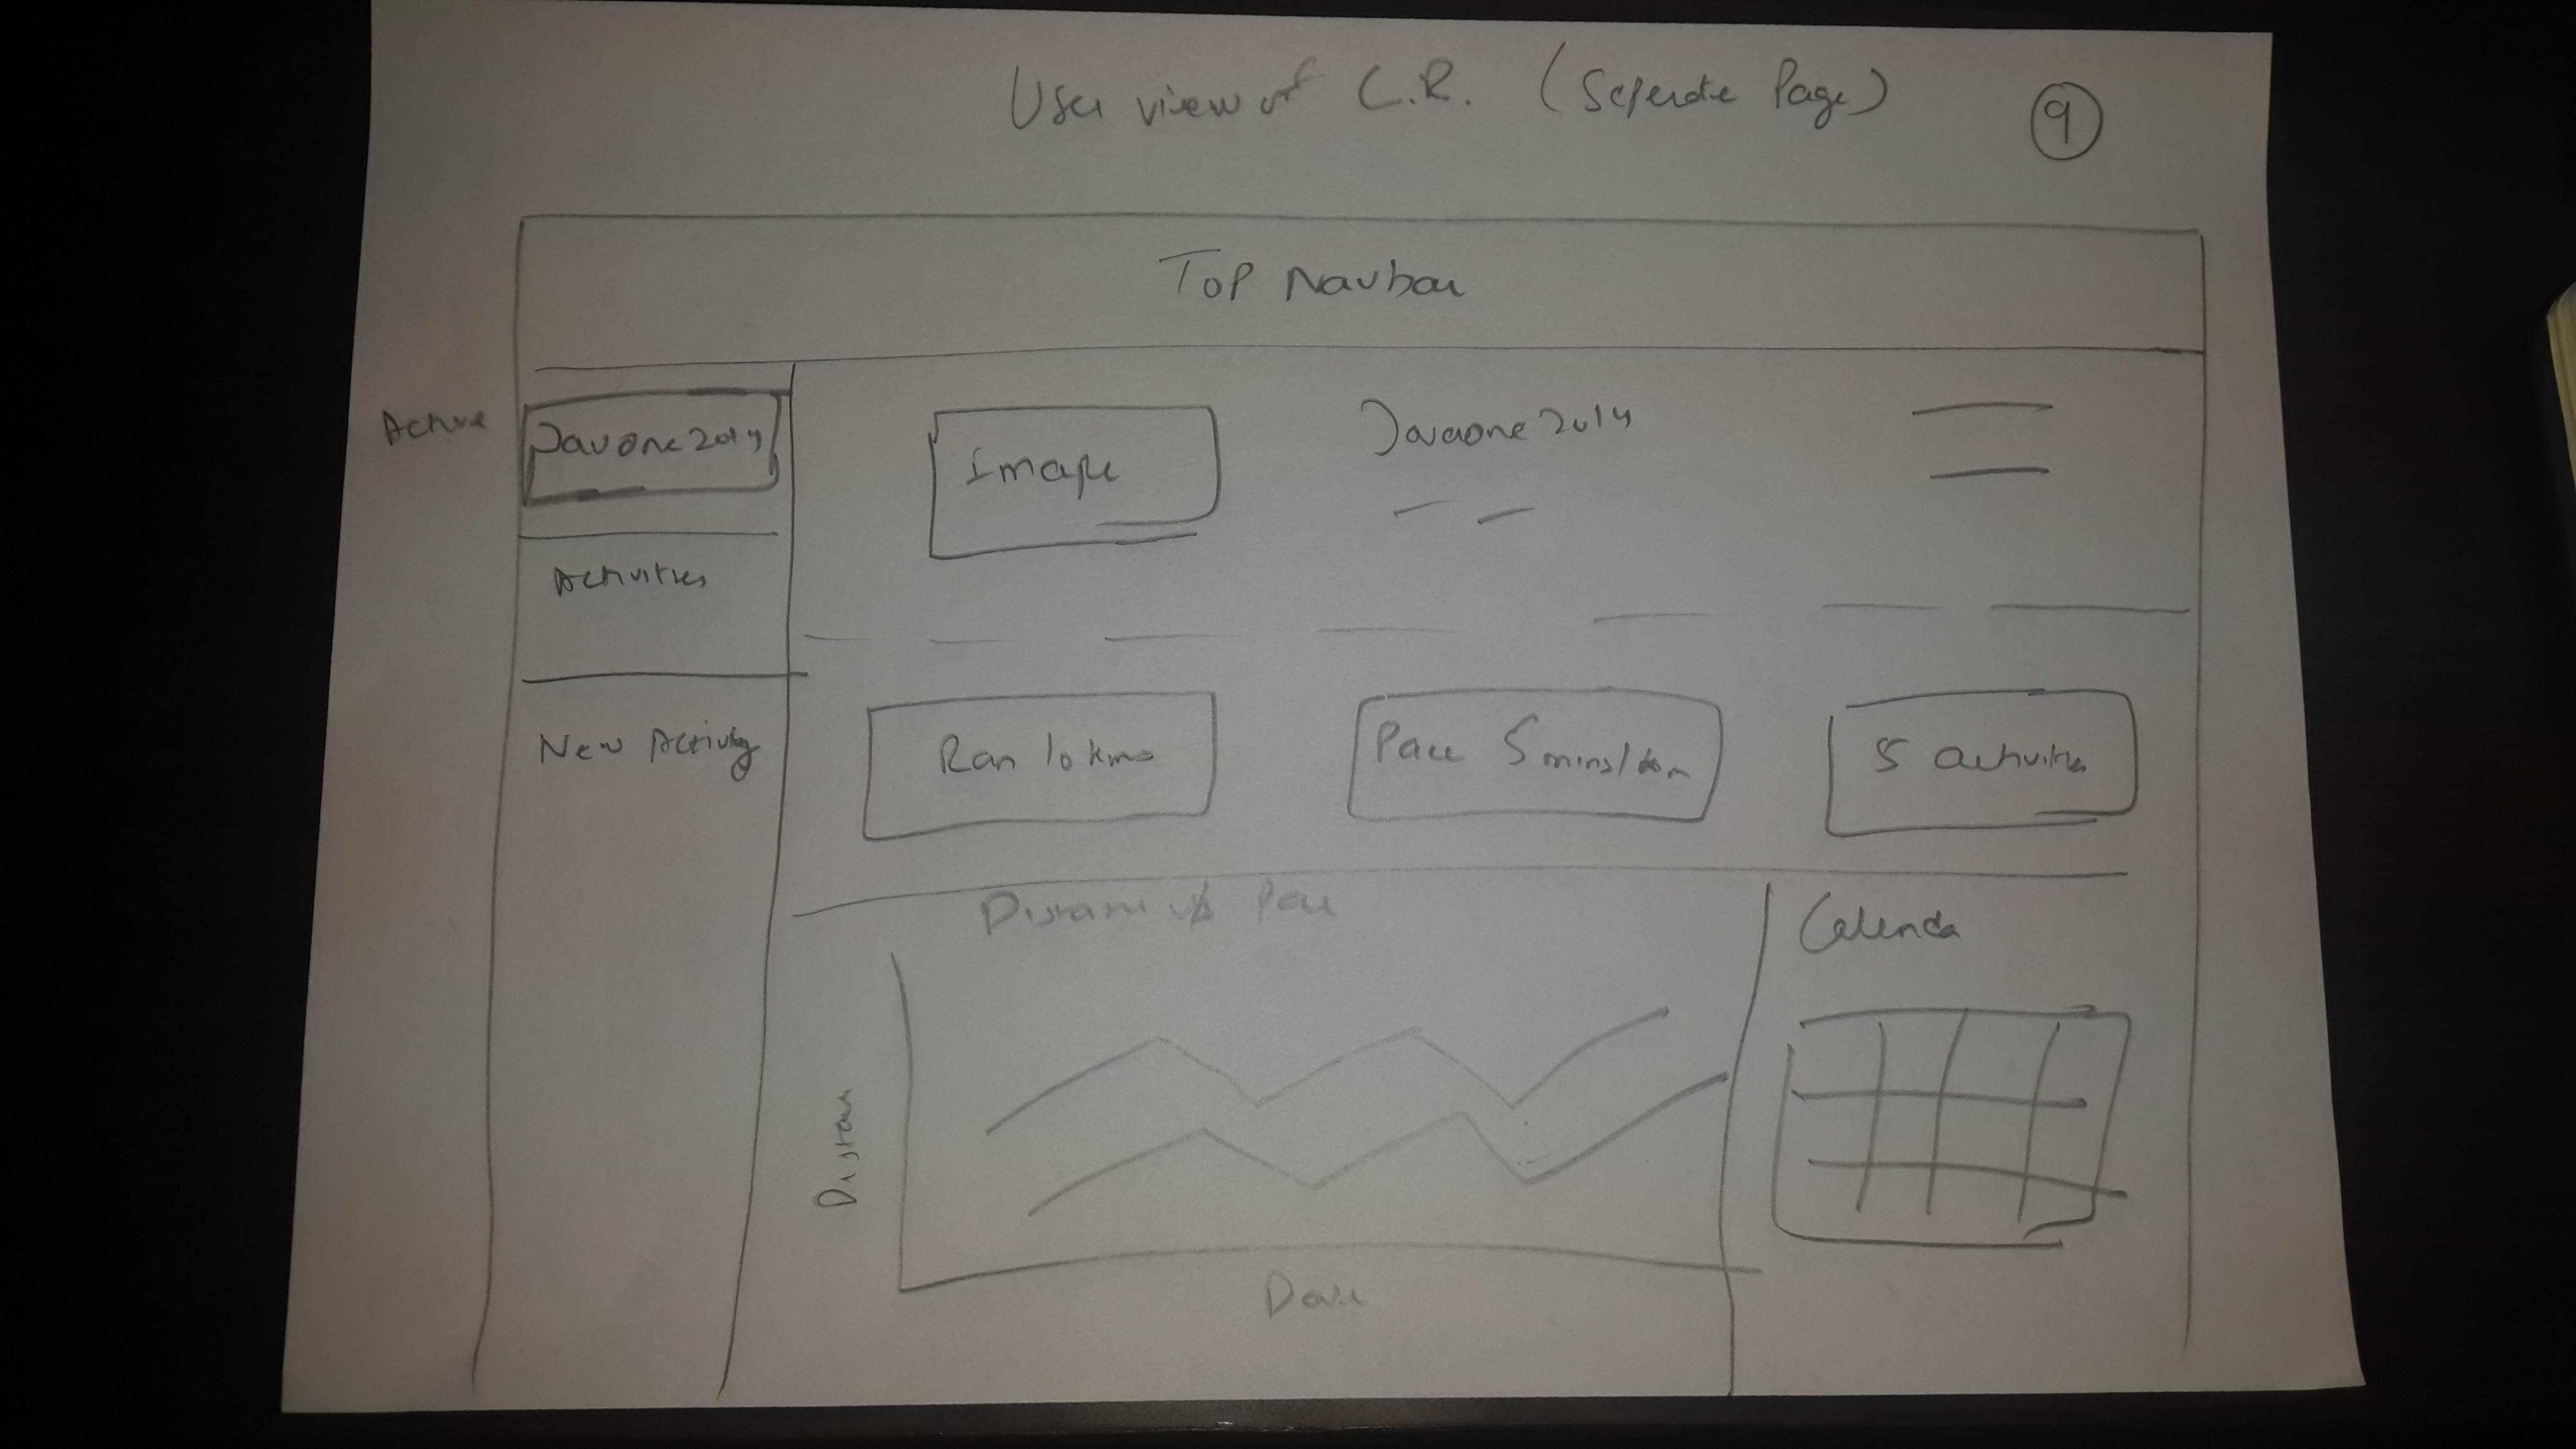 User view of C.R. (Seperate Page)
9
Top Navbar
Active
Javaone2014
Activities
New Activity
Image
Javaone2014
Ran 10 kms
Pace 5 mins/km
5 activities
Distance v/s Pace
Distan
Date
Calenda